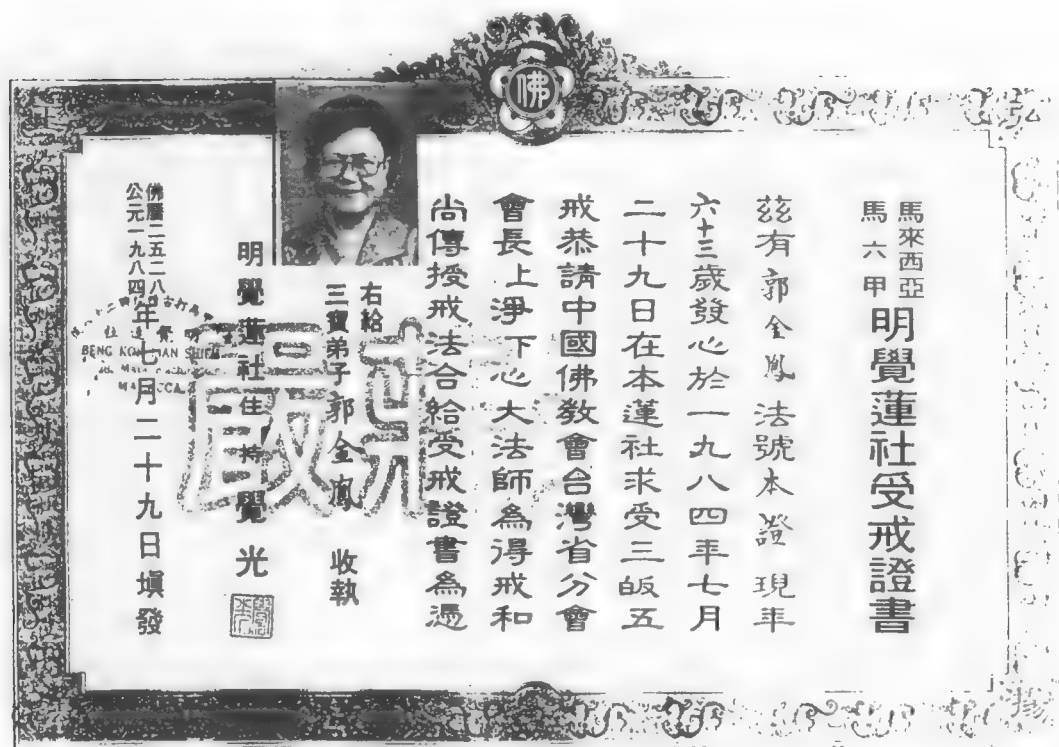 佛
馬來西亞
馬六甲
明覺蓮社受戒證書
茲有郭金鳳法號本證現年
六十三歲發心於一九八四年七月
二十九日在本蓮社求受三皈五
戒恭請中國佛教會台灣省分會
會長上淨下心大法師為得戒和
尚傳授戒法合給受戒證書為憑
右給
三寶弟子郭金鳳 收執
明覺蓮社住持覺光
佛曆二五二八
公元一九八四
年七月二十九日填發
BENG KOK
MALACCA
戒